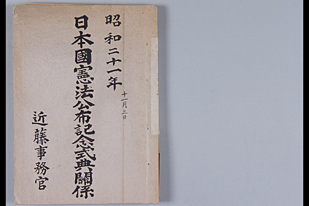 昭和二十一年
十一月三日
日本國憲法公布記念式典關係
近藤事務官